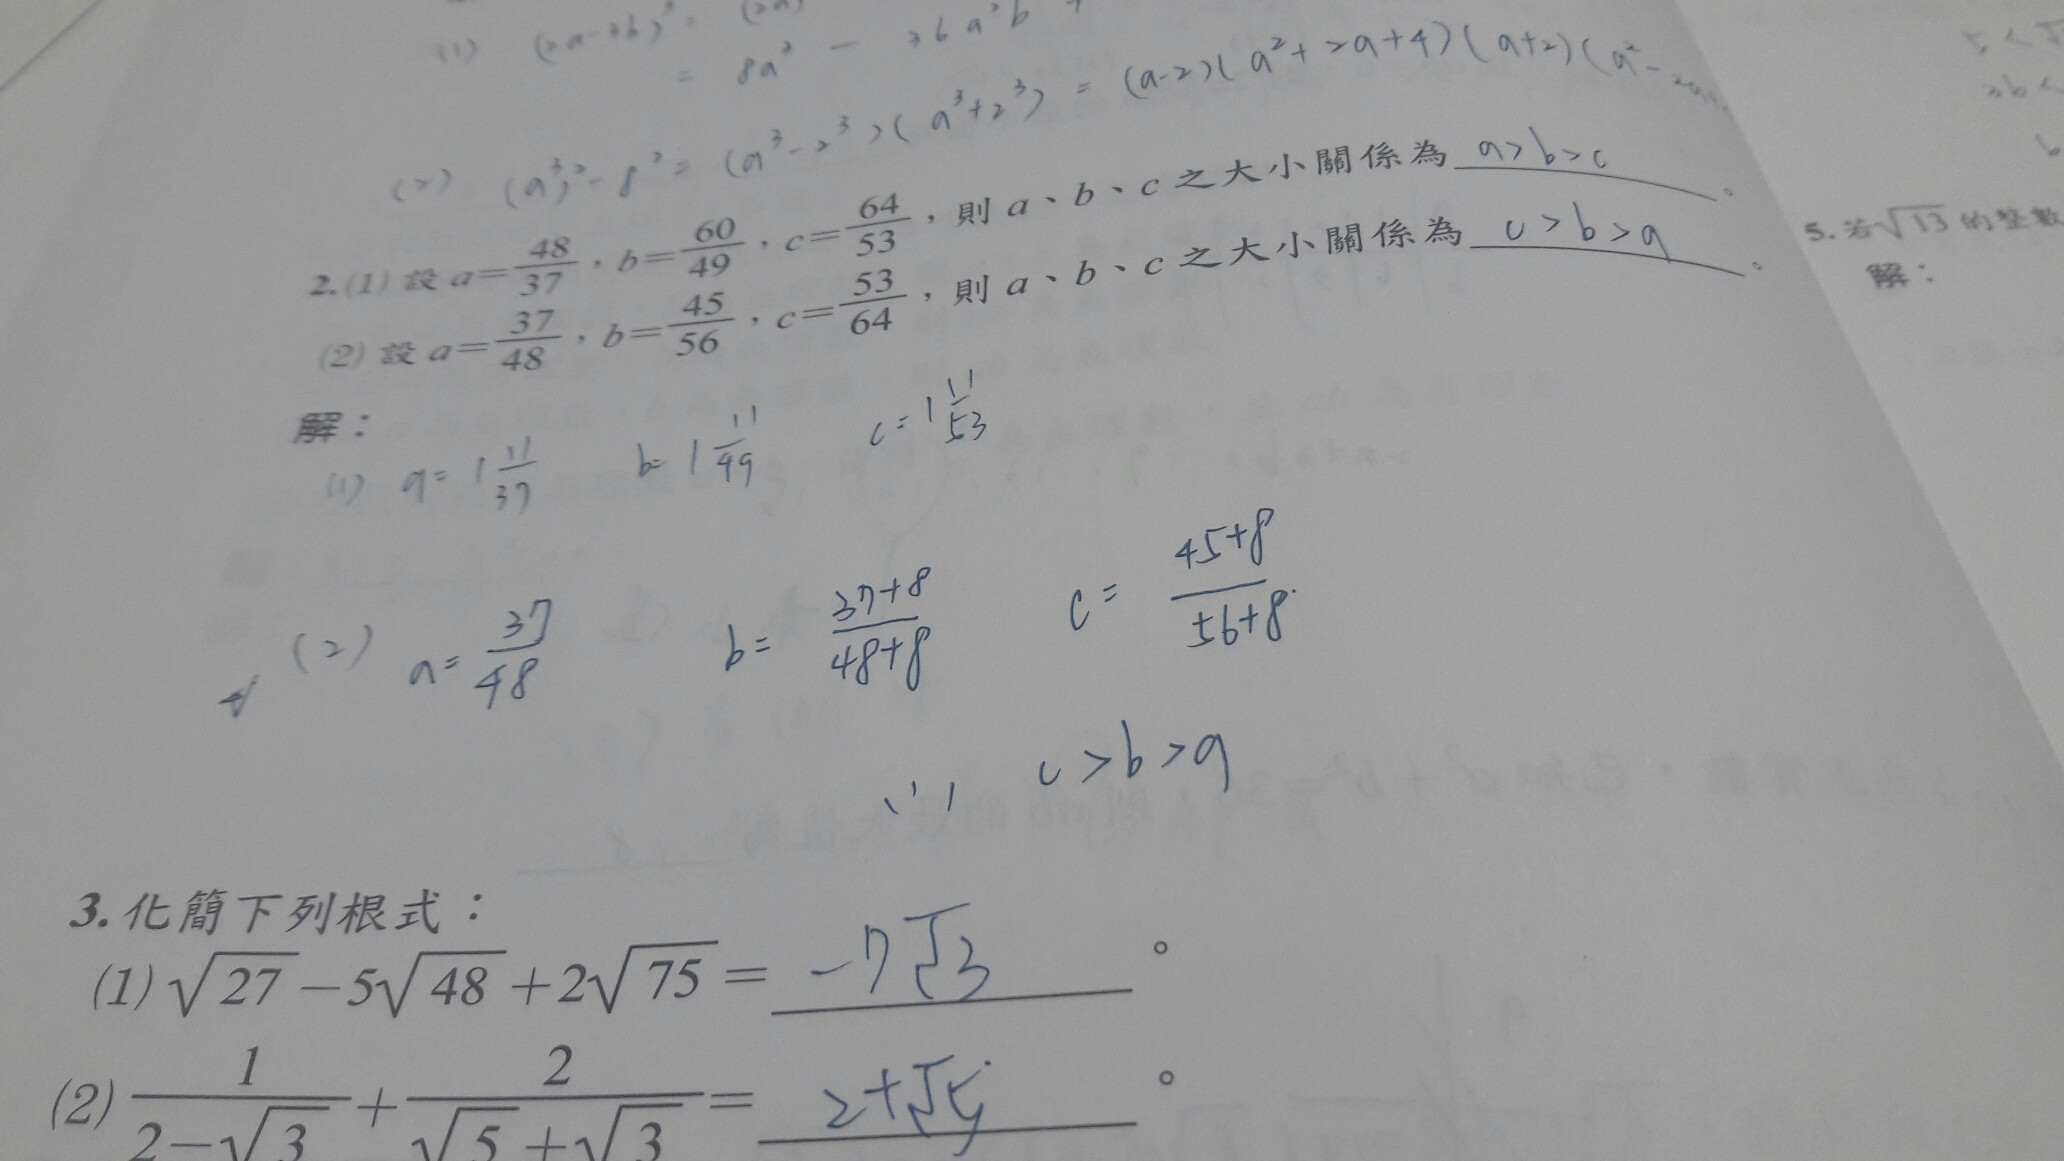 (1) (2a-3b)³= (2a)
= 8a³ - 36a²b +
(2) (a³)²-8²= (a³-2³)(a³+2³) = (a-2)(a²+2a+4)(a+2)(a²-2a+
2.(1) 設 a=48/37，b=60/49，c=64/53，則 a、b、c 之大小關係為 a>b>c。
(2) 設 a=37/48，b=45/56，c=53/64，則 a、b、c 之大小關係為 c>b>a。
解：
(1) a= 1 11/37 b= 1 11/49 c= 1 11/53
(2) a= 37/48 b= 37+8/48+8 c= 45+8/56+8
c>b>a
3. 化簡下列根式：
(1) √27-5√48+2√75= -7√3。
(2) 1/2-√3+2/√5+√3= 2+√5。
5. 若√13 的整數
解：